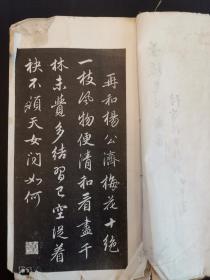 再和楊公濟梅花十絕
一枝風物便清和看盡千
林未覺多結習已空從着
袂不須天女問如何